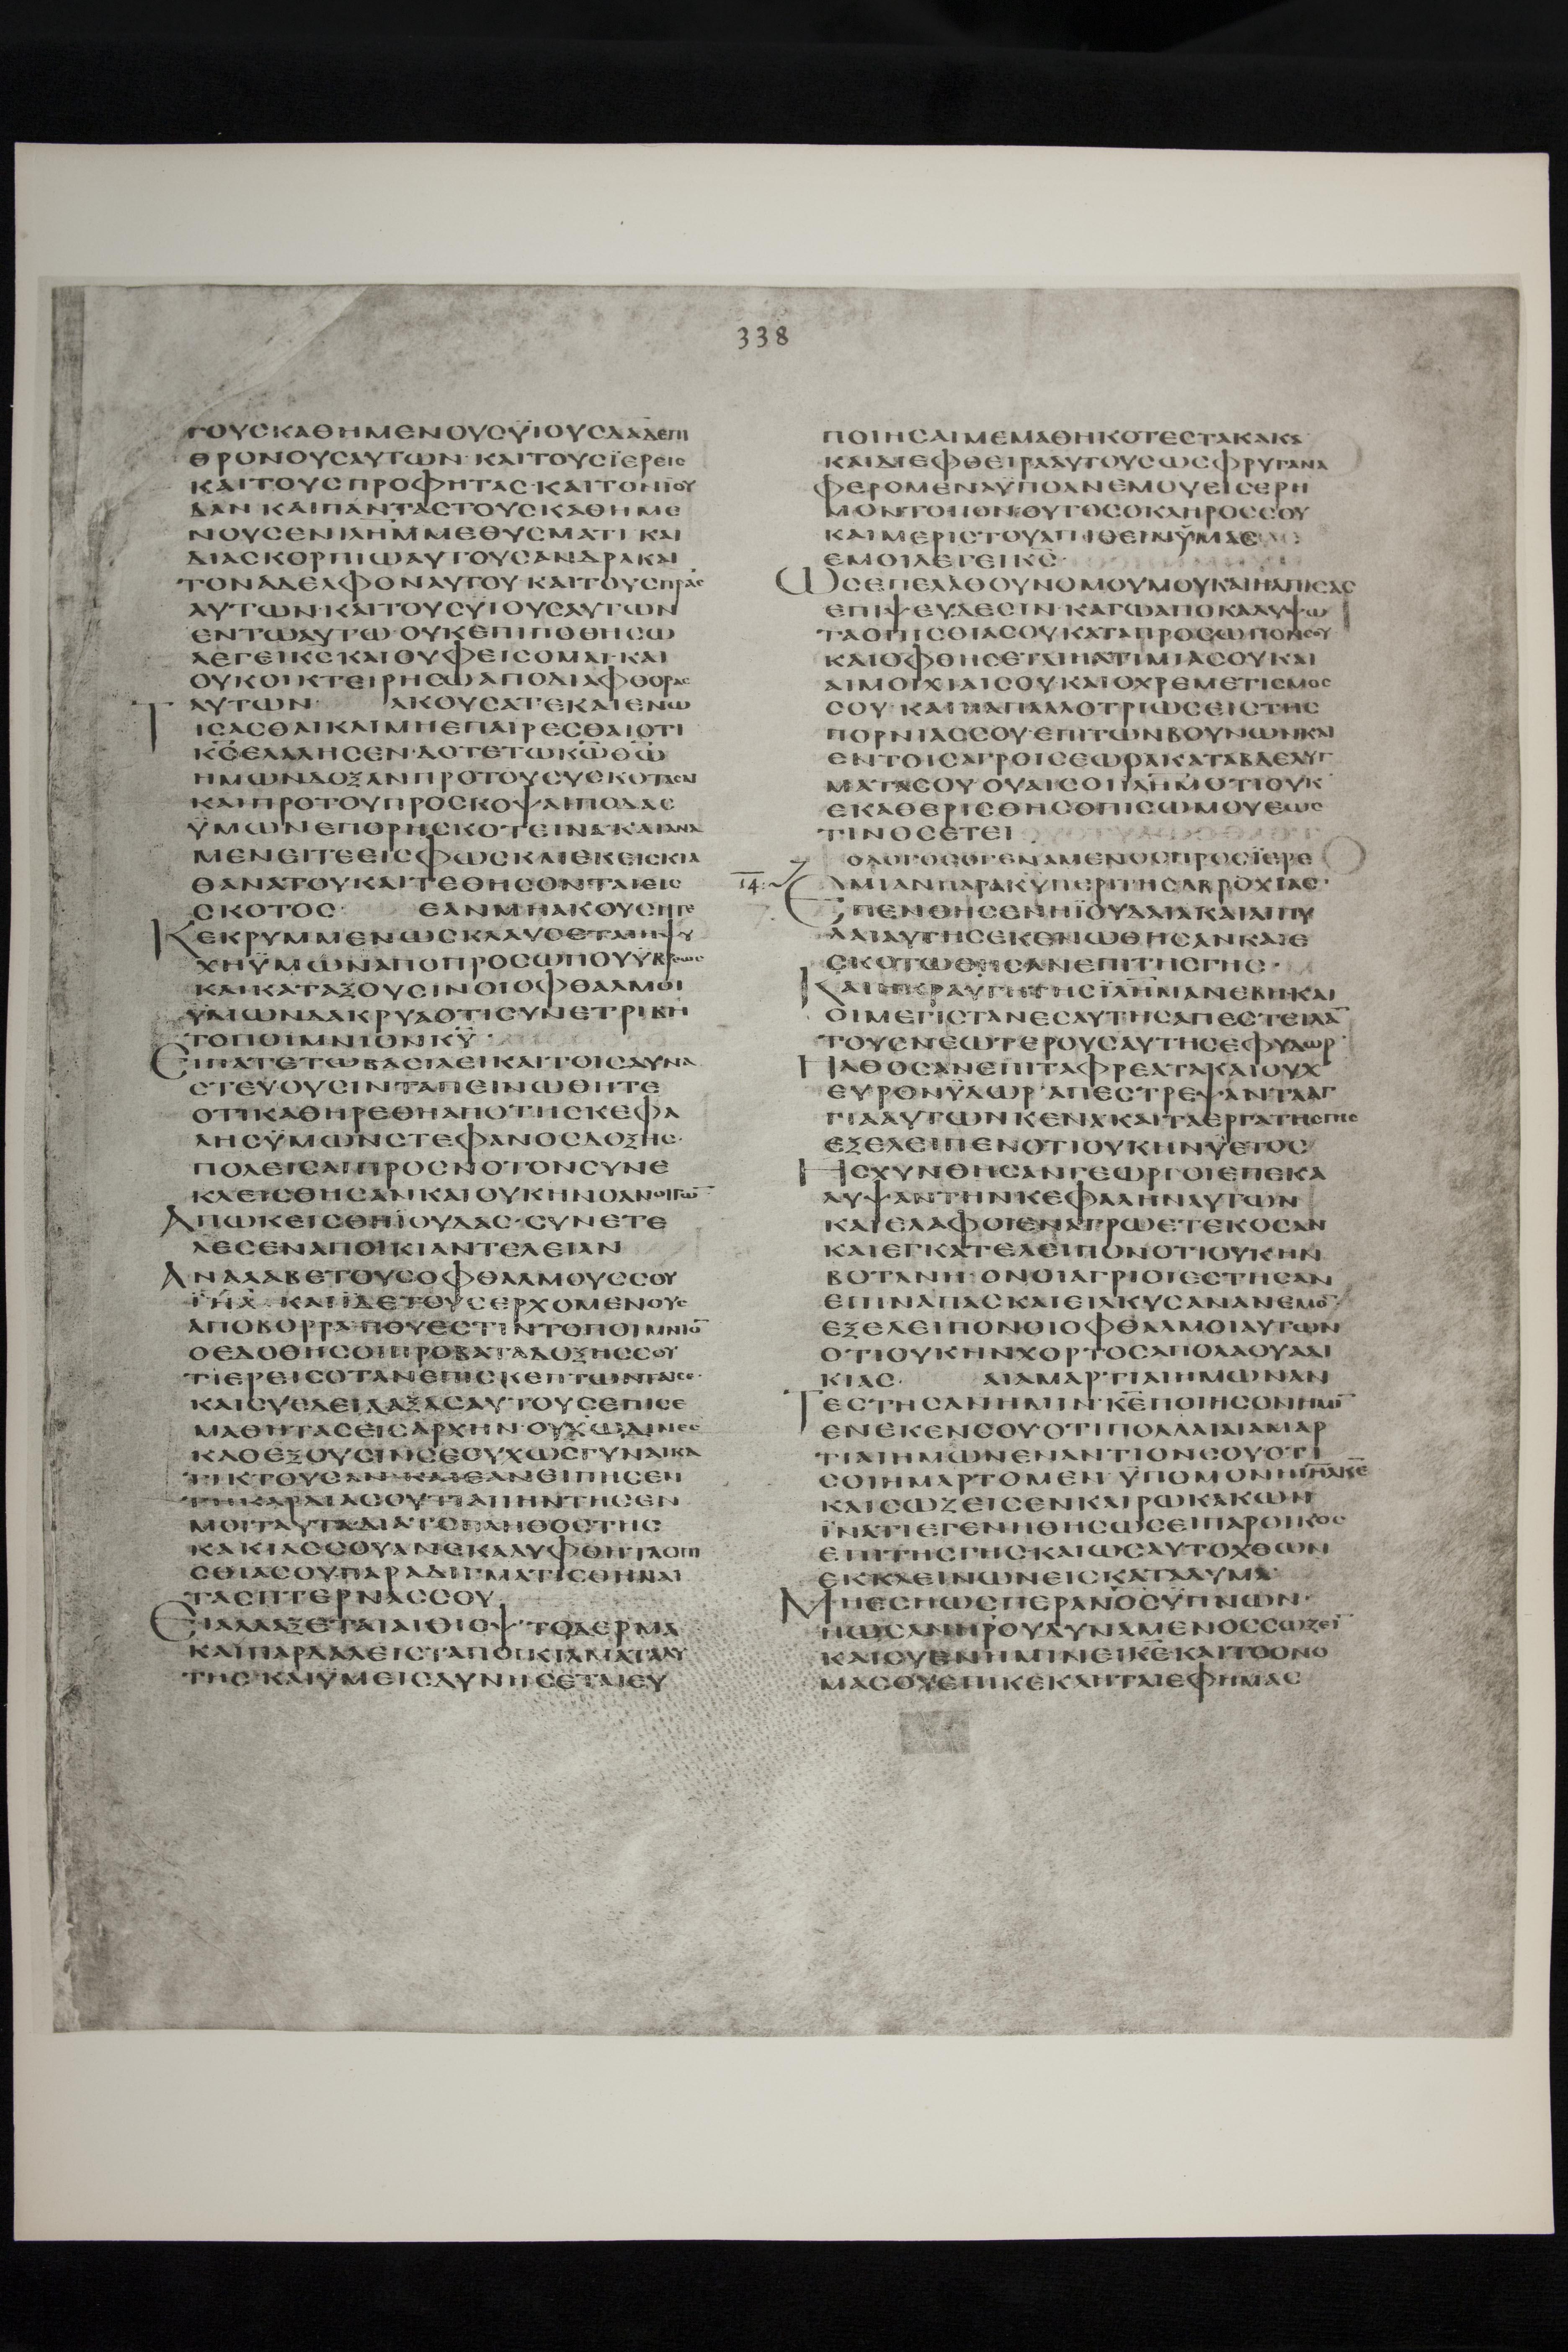 338
ΤΟΥΣΚΑΘΗΜΕΝΟΥΣΫΙΟΥΣΔΑΔΕΠΙ
ΘΡΟΝΟΥΣΑΥΤΩΝ·ΚΑΙΤΟΥΣΪΕΡΕΙΣ
ΚΑΙΤΟΥΣΠΡΟΦΗΤΑΣ·ΚΑΙΤΟΝΪΟΥ
ΔΑΝ·ΚΑΙΠΑΝΤΑΣΤΟΥΣΚΑΘΗΜΕ
ΝΟΥΣΕΝΙΛΗΜΜΕΘΥΣΜΑΤΙ·ΚΑΙ
ΔΙΑΣΚΟΡΠΙΩΑΥΤΟΥΣΑΝΔΡΑΚΑΙ
ΤΟΝΑΔΕΛΦΟΝΑΥΤΟΥ·ΚΑΙΤΟΥΣΠΡΑΣ
ΑΥΤΩΝ·ΚΑΙΤΟΥΣΫΙΟΥΣΑΥΤΩΝ
ΕΝΤΩΑΥΤΩ·ΟΥΚΕΠΙΠΟΘΗΣΩ
ΛΕΓΕΙΚΣΚΑΙΟΥΦΕΙΣΟΜΑΙ·ΚΑΙ
ΟΥΚΟΙΚΤΕΙΡΗΣΩΑΠΟΔΙΑΦΘΟΡΑΣ
ΑΥΤΩΝ ΑΚΟΥΣΑΤΕΚΑΙΕΝΩ
ΤΙΣΑΣΘΑΙΚΑΙΜΗΕΠΑΙΡΕΣΘΑΙΟΤΙ
ΚΣΕΛΑΛΗΣΕΝ·ΔΟΤΕΤΩΚΩΘΩ
ΗΜΩΝΔΟΞΑΝΠΡΟΤΟΥΣΥΣΚΟΤΑΣΑΙ
ΚΑΙΠΡΟΤΟΥΠΡΟΣΚΟΨΑΙΠΟΔΑΣ
ΫΜΩΝΕΠΟΡΗΣΚΟΤΕΙΝΑ·ΚΑΙΑΝΑ
ΜΕΝΕΙΤΕΕΙΣΦΩΣΚΑΙΕΚΕΙΣΚΙΑ
ΘΑΝΑΤΟΥΚΑΙΤΕΘΗΣΟΝΤΑΙΕΙΣ
ΣΚΟΤΟΣ ΕΑΝΜΗΑΚΟΥΣΗΤΕ
ΚΕΚΡΥΜΜΕΝΩΣΚΛΑΥΣΕΤΑΙΗΨΥ
ΧΗΫΜΩΝΑΠΟΠΡΟΣΩΠΟΥΫΒΡΕΩΣ
ΚΑΙΚΑΤΑΞΟΥΣΙΝΟΙΟΦΘΑΛΜΟΙ
ΫΜΩΝΔΑΚΡΥΑΟΤΙΣΥΝΕΤΡΙΒΗ
ΤΟΠΟΙΜΝΙΟΝΚΥ
ΕΙΠΑΤΕΤΩΒΑΣΙΛΕΙΚΑΙΤΟΙΣΔΥΝΑ
ΣΤΕΥΟΥΣΙΝΤΑΠΕΙΝΩΘΗΤΕ
ΟΤΙΚΑΘΗΡΕΘΗΑΠΟΤΗΣΚΕΦΑ
ΛΗΣΫΜΩΝΣΤΕΦΑΝΟΣΔΟΞΗΣ·
ΠΟΛΕΙΣΑΙΠΡΟΣΝΟΤΟΝΣΥΝΕ
ΚΛΕΙΣΘΗΣΑΝΚΑΙΟΥΚΗΝΟΑΝΟΙΓΩ¯
ΑΠΩΚΕΙΣΘΗΪΟΥΔΑΣ·ΣΥΝΕΤΕ
ΛΕΣΕΝΑΠΟΙΚΙΑΝΤΕΛΕΙΑΝ
ΑΝΑΛΑΒΕΤΟΥΣΟΦΘΑΛΜΟΥΣΣΟΥ
ΪΗΛ·ΚΑΙΪΔΕΤΟΥΣΕΡΧΟΜΕΝΟΥΣ
ΑΠΟΒΟΡΡΑ·ΠΟΥΕΣΤΙΝΤΟΠΟΙΜΝΙΟ¯
ΟΕΔΟΘΗΣΟΙΠΡΟΒΑΤΑΔΟΞΗΣΣΟΥ
ΤΙΕΡΕΙΣΟΤΑΝΕΠΙΣΚΕΠΤΩΝΤΑΙΣΕ·
ΚΑΙΣΥΕΔΕΙΔΑΞΑΣΑΥΤΟΥΣΕΠΙΣΕ
ΜΑΘΗΤΑΣΕΙΣΑΡΧΗΝ·ΟΥΧΩΔΙΝΕΣ
ΚΑΘΕΞΟΥΣΙΝΣΕΟΥΧΩΣΓΥΝΑΙΚΑ
ΤΙΚΤΟΥΣΑΝ·ΚΑΙΕΑΝΕΙΠΗΣΕΝ
ΤΗΚΑΡΔΙΑΣΟΥΤΙΑΠΗΝΤΗΣΕΝ
ΜΟΙΤΑΥΤΑ·ΔΙΑΤΟΠΛΗΘΟΣΤΗΣ
ΚΑΚΙΑΣΣΟΥΑΝΕΚΑΛΥΦΘΗΤΑΟΠΙ
ΣΘΙΑΣΟΥΠΑΡΑΔΙΓΜΑΤΙΣΘΗΝΑΙ
ΤΑΣΠΤΕΡΝΑΣΣΟΥ
ΕΙΑΛΛΑΞΕΤΑΙΑΙΘΙΟΨΤΟΔΕΡΜΑ
ΚΑΙΠΑΡΔΑΛΕΙΣΤΑΠΟΙΚΙΛΜΑΤΑΑΥ
ΤΗΣ·ΚΑΙΫΜΕΙΣΔΥΝΗΣΕΤΑΙΕΥ
ΠΟΙΗΣΑΙΜΕΜΑΘΗΚΟΤΕΣΤΑΚΑΚΑ·
ΚΑΙΔΙΕΦΘΕΙΡΑΑΥΤΟΥΣΩΣΦΡΥΓΑΝΑ
ΦΕΡΟΜΕΝΑΫΠΟΑΝΕΜΟΥΕΙΣΕΡΗ
ΜΟΝ·ΤΟΙΟΝΟΥΤΟΣΟΚΛΗΡΟΣΣΟΥ
ΚΑΙΜΕΡΙΣΤΟΥΑΠΙΘΕΙΝΫΜΑΣ
ΕΜΟΙΛΕΓΕΙΚΣ
ΩΣΕΠΕΛΑΘΟΥΝΟΜΟΥΜΟΥΚΑΙΗΛΠΙΣΑΣ
ΕΠΙΨΕΥΔΕΣΙΝ·ΚΑΓΩΑΠΟΚΑΛΥΨΩ
ΤΑΟΠΙΣΘΙΑΣΟΥΚΑΤΑΠΡΟΣΩΠΟΝΣΟΥ
ΚΑΙΟΦΘΗΣΕΤΑΙΗΑΤΙΜΙΑΣΟΥΚΑΙ
ΑΙΜΟΙΧΙΑΙΣΟΥΚΑΙΟΧΡΕΜΕΤΙΣΜΟΣ
ΣΟΥ·ΚΑΙΗΑΠΑΛΛΟΤΡΙΩΣΕΙΣΤΗΣ
ΠΟΡΝΙΑΣΣΟΥ·ΕΠΙΤΩΝΒΟΥΝΩΝΚΑΙ
ΕΝΤΟΙΣΑΓΡΟΙΣΕΩΡΑΚΑΤΑΒΔΕΛΥΓ
ΜΑΤΑΣΟΥ·ΟΥΑΙΣΟΙΙΛΗΜΟΤΙΟΥΚ
ΕΚΑΘΕΡΙΣΘΗΣΟΠΙΣΩΜΟΥΕΩΣ
ΤΙΝΟΣΕΤΕΙ
ΟΛΟΓΟΣΟΓΕΝΑΜΕΝΟΣΠΡΟΣΪΕΡΕ
14· ΜΙΑΝΠΑΡΑΚΥΠΕΡΙΤΗΣΑΒΡΟΧΙΑΣ·
ΕΠΕΝΘΗΣΕΝΗΪΟΥΔΑΙΑΚΑΙΑΙΠΥ
ΛΑΙΑΥΤΗΣΕΚΕΝΩΘΗΣΑΝΚΑΙΕ
ΣΚΟΤΩΘΗΣΑΝΕΠΙΤΗΣΓΗΣ·
ΚΑΙΗΚΡΑΥΓΗΤΗΣΪΛΗΜΑΝΕΒΗΚΑΙ
ΟΙΜΕΓΙΣΤΑΝΕΣΑΥΤΗΣΑΠΕΣΤΕΙΛΑ¯
ΤΟΥΣΝΕΩΤΕΡΟΥΣΑΥΤΗΣΕΦΥΔΩΡ·
ΗΛΘΟΣΑΝΕΠΙΤΑΦΡΕΑΤΑΚΑΙΟΥΧ
ΕΥΡΟΝΫΔΩΡ·ΑΠΕΣΤΡΕΨΑΝΤΑΑΓ
ΓΙΑΑΥΤΩΝΚΕΝΑ·ΚΑΙΤΑΕΡΓΑΤΗΣΓΗΣ
ΕΞΕΛΕΙΠΕΝΟΤΙΟΥΚΗΝΫΕΤΟΣ
ΗΣΧΥΝΘΗΣΑΝΓΕΩΡΓΟΙΕΠΕΚΑ
ΛΥΨΑΝΤΗΝΚΕΦΑΛΗΝΑΥΤΩΝ
ΚΑΙΕΛΑΦΟΙΕΝΑΓΡΩΕΤΕΚΟΣΑΝ
ΚΑΙΕΓΚΑΤΕΛΕΙΠΟΝΟΤΙΟΥΚΗΝ
ΒΟΤΑΝΗ·ΟΝΟΙΑΓΡΙΟΙΕΣΤΗΣΑΝ
ΕΠΙΝΑΠΑΣΚΑΙΕΙΛΚΥΣΑΝΑΝΕΜΟ¯
ΕΞΕΛΕΙΠΟΝΟΙΟΦΘΑΛΜΟΙΑΥΤΩΝ
ΟΤΙΟΥΚΗΝΧΟΡΤΟΣΑΠΟΛΑΟΥΑΔΙ
ΚΙΑΣ· ΑΙΑΜΑΡΤΙΑΙΗΜΩΝΑΝ
ΤΕΣΤΗΣΑΝΗΜΙΝ·ΚΕΠΟΙΗΣΟΝΗΜΙ¯
ΕΝΕΚΕΝΣΟΥΟΤΙΠΟΛΛΑΙΑΙΑΜΑΡ
ΤΙΑΙΗΜΩΝΕΝΑΝΤΙΟΝΣΟΥΟΤΙ
ΣΟΙΗΜΑΡΤΟΜΕΝ·ΫΠΟΜΟΝΗΙΗΛΚΕ
ΚΑΙΣΩΖΕΙΣΕΝΚΑΙΡΩΚΑΚΩΝ
ΪΝΑΤΙΕΓΕΝΗΘΗΣΩΣΕΙΠΑΡΟΙΚΟΣ
ΕΠΙΤΗΣΓΗΣ·ΚΑΙΩΣΑΥΤΟΧΘΩΝ
ΕΚΚΛΕΙΝΩΝΕΙΣΚΑΤΑΛΥΜΑ·
ΜΗΕΣΗΩΣΠΕΡΑΝΟΣΫΠΝΩΝ·
ΗΩΣΑΝΗΡΟΥΔΥΝΑΜΕΝΟΣΣΩΖΕΙ¯
ΚΑΙΣΥΕΝΗΜΙΝΕΙΚΕΚΑΙΤΟΟΝΟ
ΜΑΣΟΥΕΠΙΚΕΚΛΗΤΑΙΕΦΗΜΑΣ